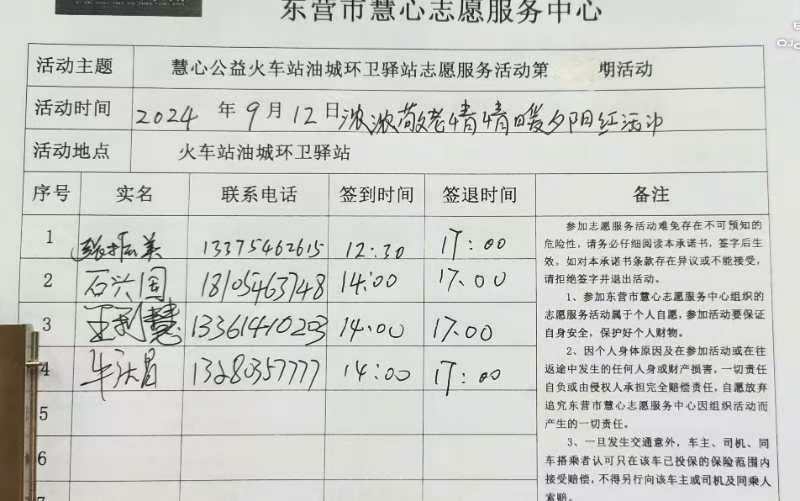 东营市慧心志愿服务中心
活动主题 慧心公益火车站油城环卫驿站志愿服务活动第 期活动
活动时间 2024 年 9 月 12 日浓浓敬老情情暖夕阳红活动
活动地点 火车站油城环卫驿站
序号 实名 联系电话 签到时间 签退时间 备注
1 张振美 13375462615 12:30 17:00
2 石兴国 18105463748 14:00 17.00
3 王利慧 13361410203 14.00 17.00
4 13280357777 14:00 17:00
5
6
7
参加志愿服务活动难免存在不可预知的
危险性,请务必仔细阅读本承诺书,签字后生
效。如对本承诺书条款存在异议或不能接受,
请拒绝签字并退出活动。
1、参加东营市慧心志愿服务中心组织的
志愿服务活动属于个人自愿,参加活动要保证
自身安全,保护好个人财物。
2、因个人身体原因及在参加活动或在往
返途中发生的任何人身或财产损害,一切责任
自负或由侵权人承担完全赔偿责任,自愿放弃
追究东营市慧心志愿服务中心因组织活动而
产生的一切责任。
3、一旦发生交通意外,车主、司机、同
车搭乘者认可只在该车已投保的保险范围内
接受赔偿,不得另行向该车主或司机及同乘人
索赔。